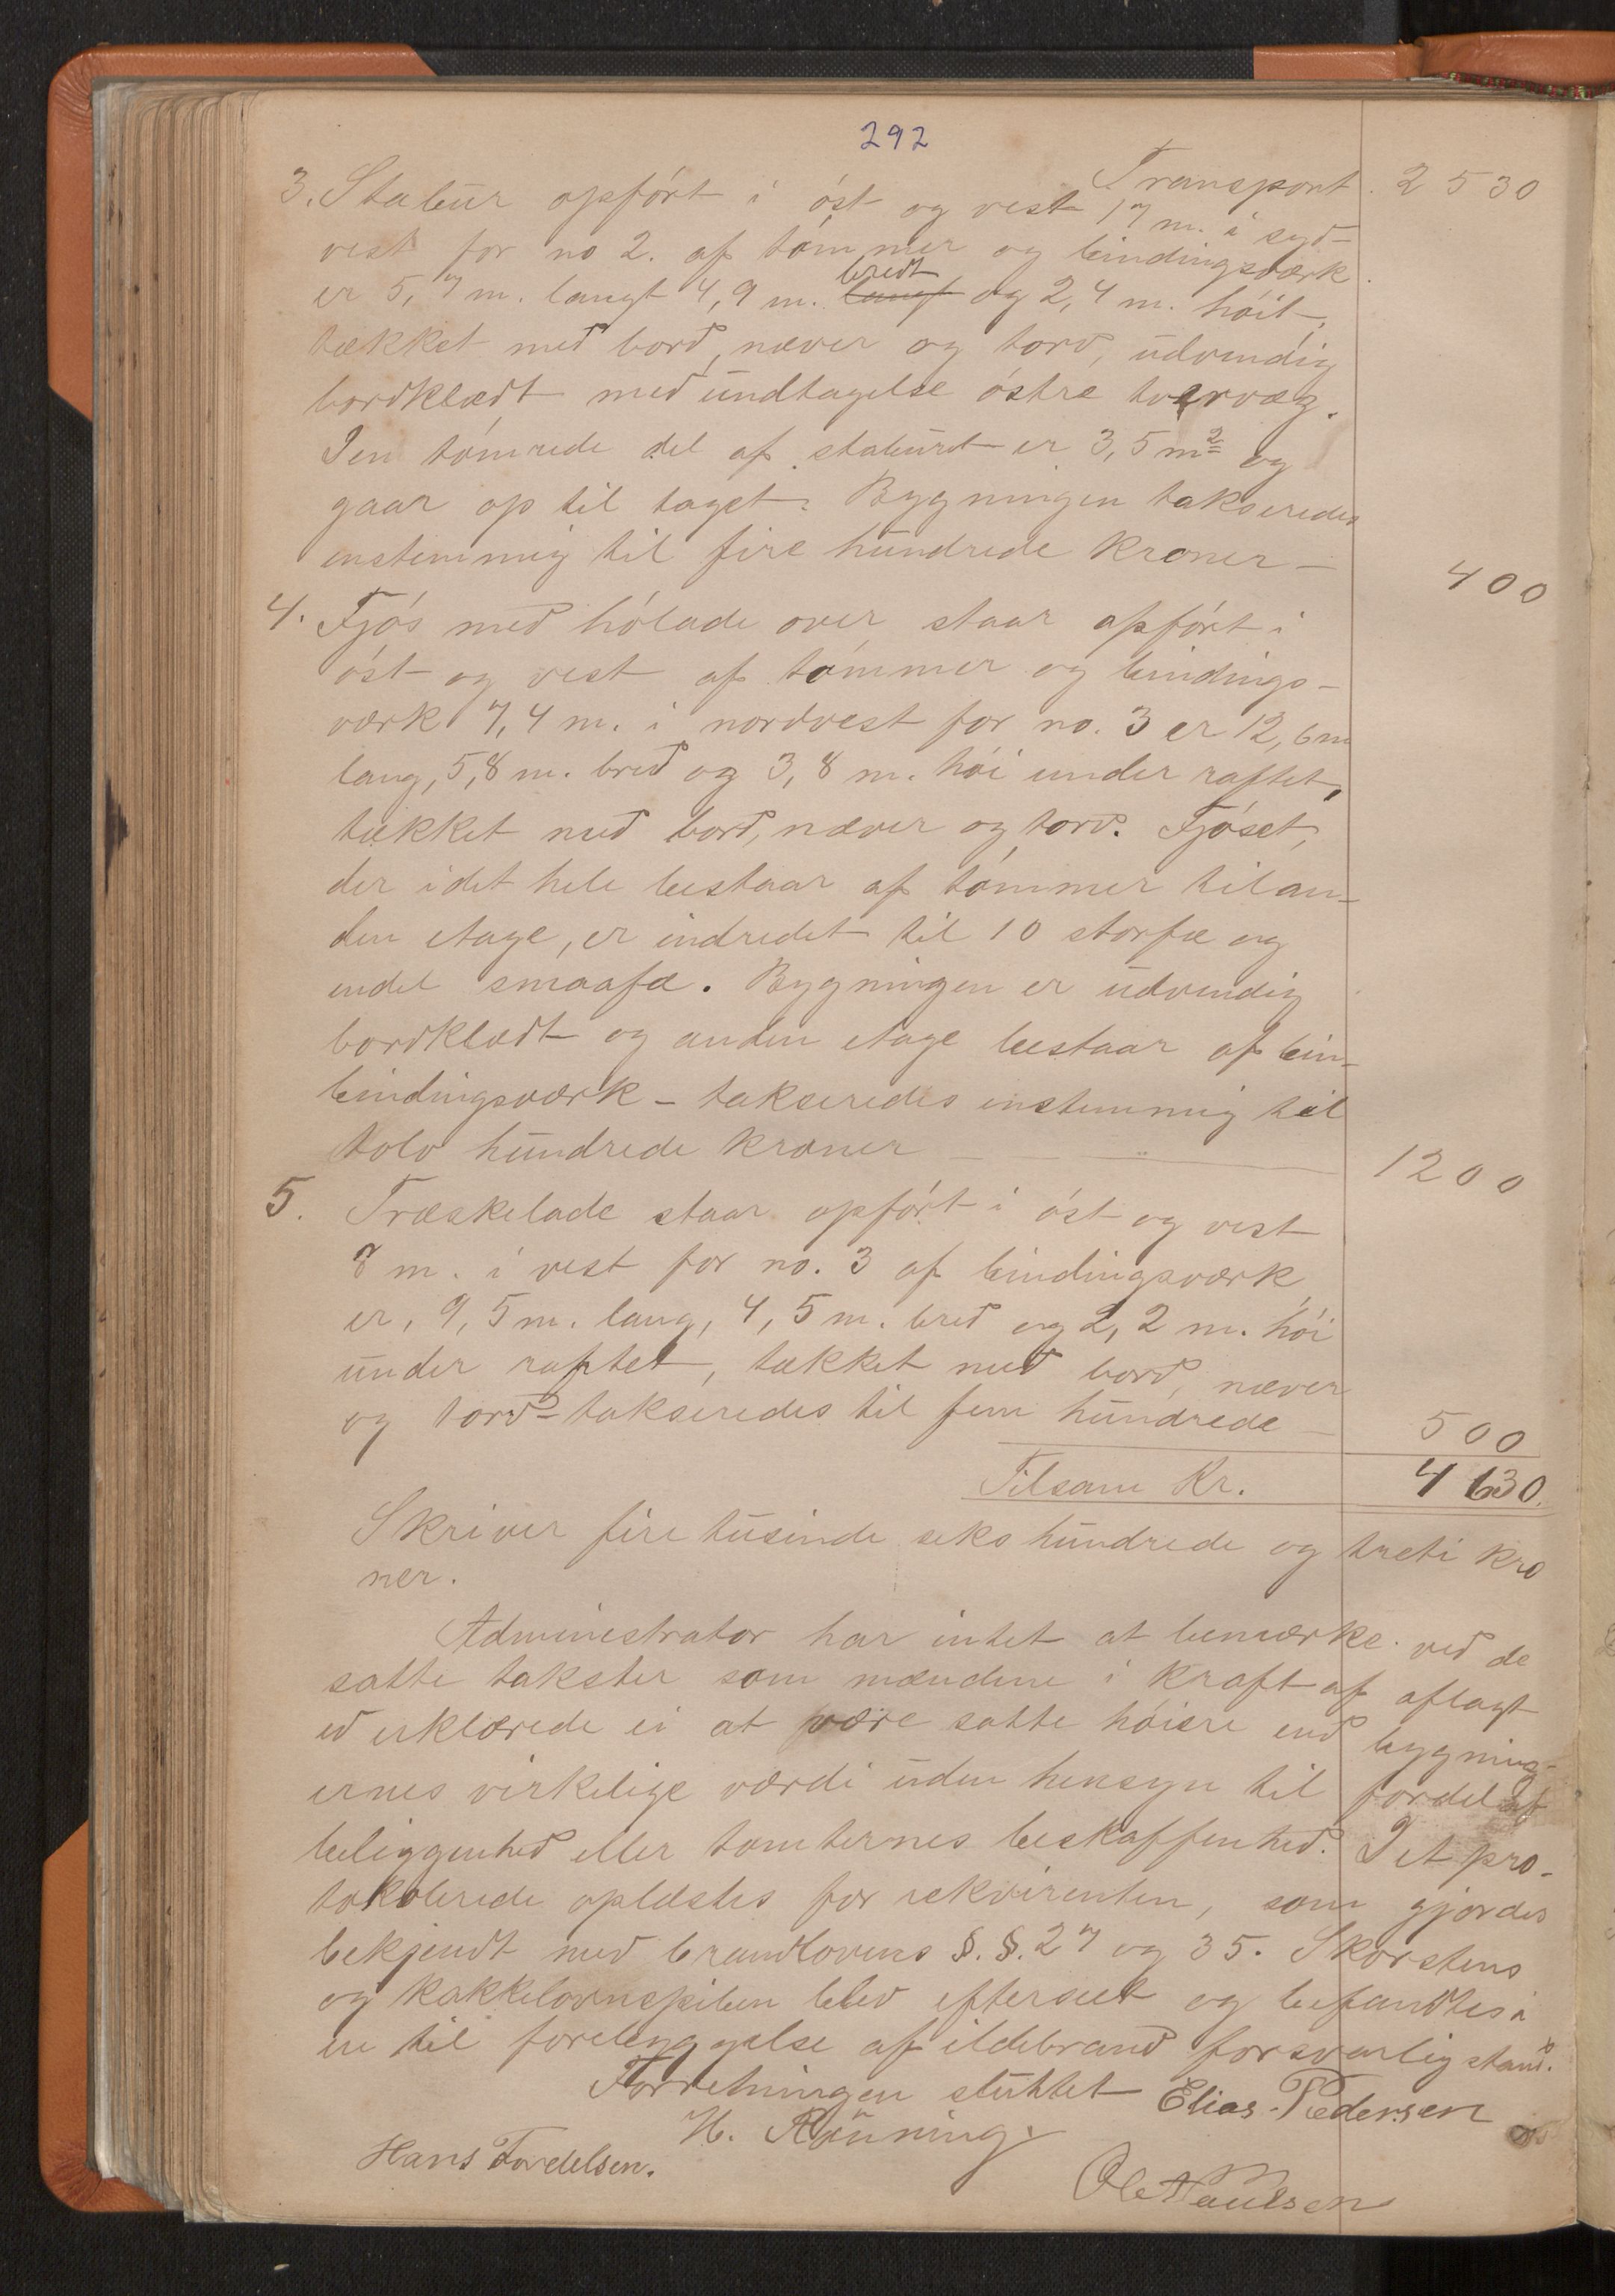 292
Transport. 2530
3. Stabur opført i øst og vest 17 m. i syd-
vest for no 2. af tømmer og bindingsværk
er 5,7 m. langt 4,9 m. langt bredt og 2,4 m. høit,
tækket med bord, næver og torv, udvendig
bordklædt med undtagelse østre tvervæg.
Den tømrede del af staburet er 3,5 m² og
gaar op til taget. Bygningen takseredes
enstemmig til fire hundrede kroner – 400
4. Fjøs med hølade over staar opført i
øst og vest af tømmer og bindings-
værk 7,4 m. i nordvest for no. 3 er 12,6 m
lang, 5,8 m. bred og 3,8 m. høi under raftet,
tækket med bord, næver og torv. Fjøset,
der i det hele bestaar af tømmer til an-
den etage, er indredet til 10 storfæ og
endel smaafæ. Bygningen er udvendig
bordklædt og anden etage bestaar af bin-
bindingsværk – takseredes enstemmig til
tolv hundrede kroner – 1200
5. Træskelade staar opført i øst og vest
8 m. i vest for no. 3 af bindingsværk,
er, 9,5 m. lang, 4,5 m. bred og 2,2 m. høi
under raftet, tækket med bord, næver
og torv – takseredes til fem hundrede – 500
Tilsam Kr. 4630.
Skriver fire tusinde seks hundrede og treti kro
ner.
Administrator har intet at bemærke ved de
satte takster som mændene i kraft af aflagt
ed erklærede ei at være satte høiere end bygning-
ernes virkelige værdi uden hensyn til fordelagt
beliggenhed eller tomternes beskaffenhed. Det pro-
tokolerede oplæstes for rekvirenten, som gjordes
bekjendt med brandlovens §.§. 27 og 35. Skorstens
og kakkelovnspiben blev efterseet og befandtes i
en til forebyggelse af ildebrand forsvarlig stand.
Forretningen sluttet Elias Pedersen
H. Rønning.
Hans Tordelsen.
Ole Paulsen